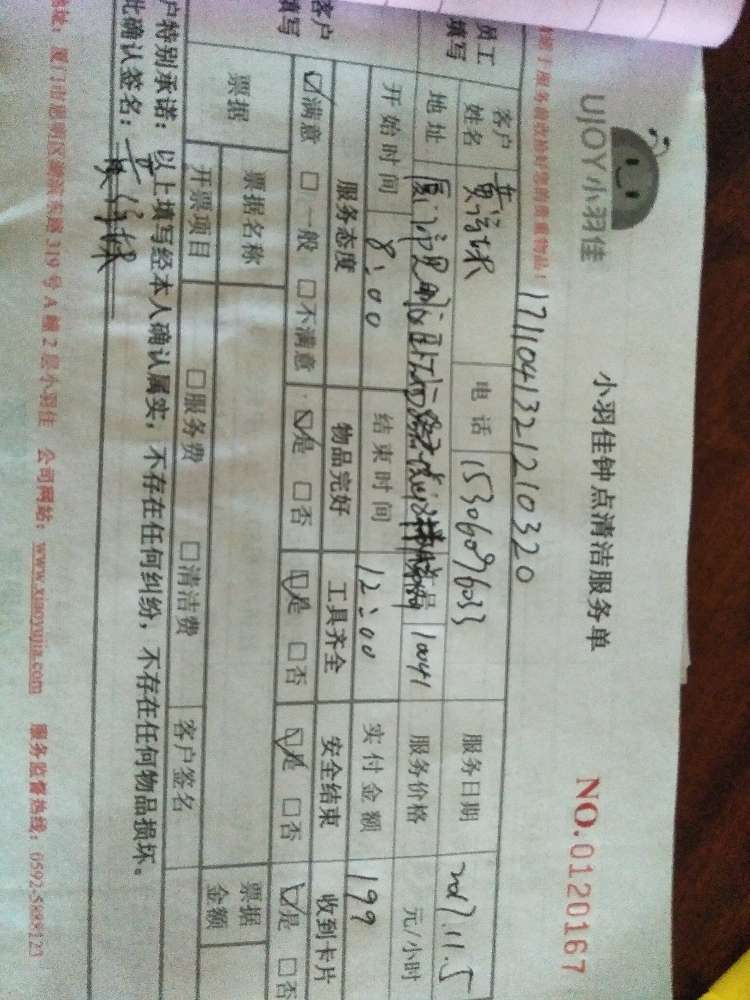 UJOY小羽佳
小羽佳钟点清洁服务单
NO.0120167
服务前收拾好您的贵重物品!
1711041321210320
员工填写
客户姓名 黄 电话 15306096033 服务日期 2017.11.5
地址 厦门 10041 服务价格 元/小时
开始时间 8:00 结束时间 12:00 实付金额 199
客户填写
服务态度 物品完好 工具齐全 安全结束 收到卡片
☑满意 □一般 □不满意 ☑是 □否 ☑是 □否 ☑是 □否 ☑是 □否
票据 票据名称 票据金额
开票项目 □服务费 □清洁费 客户签名
户特别承诺:以上填写经本人确认属实,不存在任何纠纷,不存在任何物品损坏。
此确认签名:黄
地址:厦门市思明区湖滨东路319号A幢2层小羽佳 公司网站:www.xiaoyujia.com 服务监督热线:0592-5888123